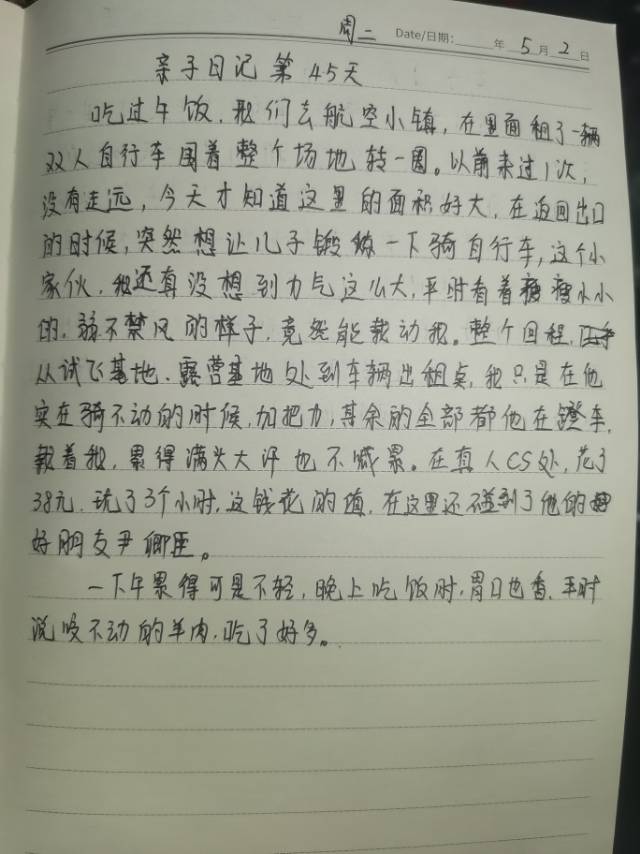 周二 Date/日期: 年 5 月 2 日
亲子日记 第 45天
吃过午饭,我们去航空小镇,在里面租了一辆
双人自行车围着整个场地转一圈。以前来过1次,
没有走远,今天才知道这里的面积好大,在返回出口
的时候,突然想让儿子锻炼一下骑自行车,这个小
家伙,我还真没想到力气这么大,平时看着瘦瘦小小
的,弱不禁风的样子,竟然能载动我。整个回程,
从试飞基地、露营基地处到车辆出租点,我只是在他
实在骑不动的时候,加把力,其余的全部都他在蹬车,
载着我,累得满头大汗也不喊累。在真人CS处,花了
38元,玩了3个小时,这钱花的值,在这里还碰到了他的
好朋友尹卿臣。
一下午累得可是不轻,晚上吃饭时,胃口也香,平时
说咬不动的羊肉,吃了好多。